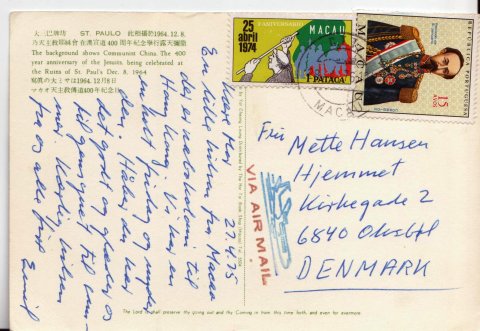 大三巴牌坊 ST. PAULO 此相攝於1964.12.8.
乃天主教耶穌會在澳宣道400周年紀念舉行露天彌撒
The background shows Communist China. The 400
year anniversary of the Jesuits, being celebrated at
the Ruins of St. Paul's Dec. 8, 1964
1964.12月8日
マカオ天主教傳道400年紀念日
25
abril
1974
1.º ANIVERSARIO
MACAU
1 PATACA
REPUBLICA PORTUGUESA
MACAU
15
AVOS
MACAU
Kære Mor
21.4.75
En lille hilsen fra Macao
der er nabokoloni til
Hong Kong. Vi har en
fridag og nyder
den. Håber du har
det godt og glæder os
til gensynet til som-
mer. Kærlig hilsen
fra os alle fire
Emil
VIA AIR MAIL
Fru Mette Hansen
Hjemmet
Kirkegade 2
6840 Oksbøl
DENMARK
The Lord shall preserve thy going out and thy Coming in from this time forth, and even for evermore.